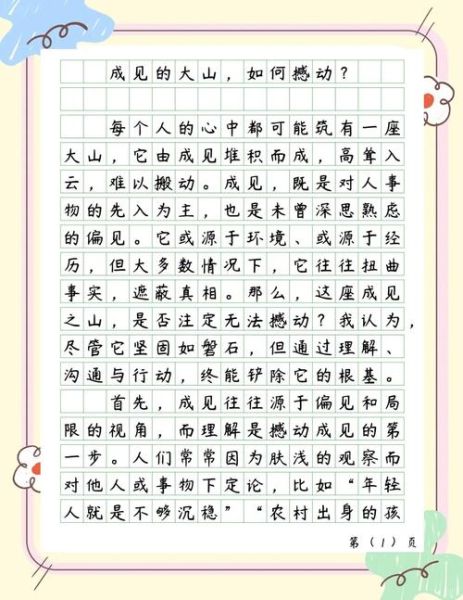 成见的大山，如何撼动？
每个人的心中都可能筑有一座
大山，它由成见堆积而成，高耸入
云，难以搬动。成见，既是对人事
物的先入为主，也是未曾深思熟虑
的偏见。它或源于环境、或源于经
历，但大多数情况下，它往往扭曲
事实，遮蔽真相。那么，这座成见
之山，是否注定无法撼动？我认为，
尽管它坚固如磐石，但通过理解、
沟通与行动，终能铲除它的根基。
首先，成见往往源于偏见和局
限的视角，而理解是撼动成见的第
一步。人们常常因为肤浅的观察而
对他人或事物下定论，比如“年轻
人就是不够沉稳”“农村出身的孩
第（1）页